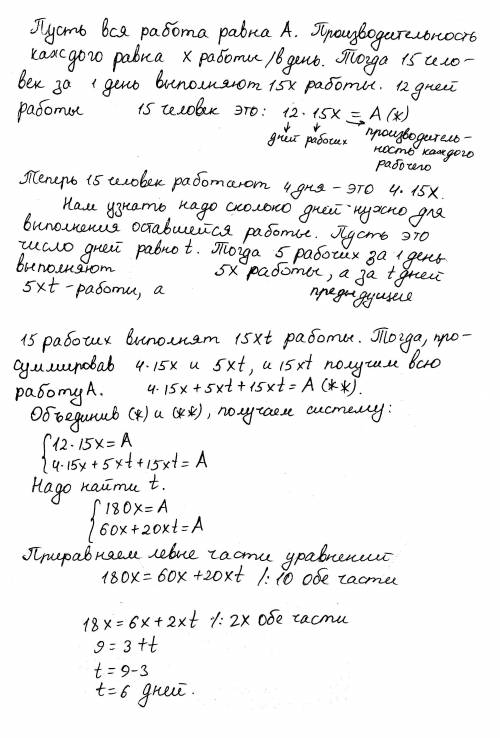 Пусть вся работа равна А. Производительность
каждого равна х работы/в день. Тогда 15 чело-
век за 1 день выполняют 15х работы. 12 дней
работы 15 человек это: 12·15х = А (*)
дней рабочих производитель-
ность каждого
рабочего
Теперь 15 человек работают 4 дня - это 4·15х.
Нам узнать надо сколько дней нужно для
выполнения оставшейся работы. Пусть это
число дней равно t. Тогда 5 рабочих за 1 день
выполняют 5х работы, а за t дней
5хt - работы, а предыдущие
15 рабочих выполнят 15хt работы. Тогда, про-
суммировав 4·15х и 5хt, и 15хt получим всю
работу А. 4·15х+5хt+15хt = А (**).
Объединив (*) и (**), получаем систему:
{12·15х = А
4·15х+5хt+15хt = А
Надо найти t.
{180х = А
60х+20хt = А
Приравняем левые части уравнений
180х = 60х+20хt /:10 обе части
18х = 6х+2хt /:2х обе части
9 = 3+t
t = 9-3
t = 6 дней.